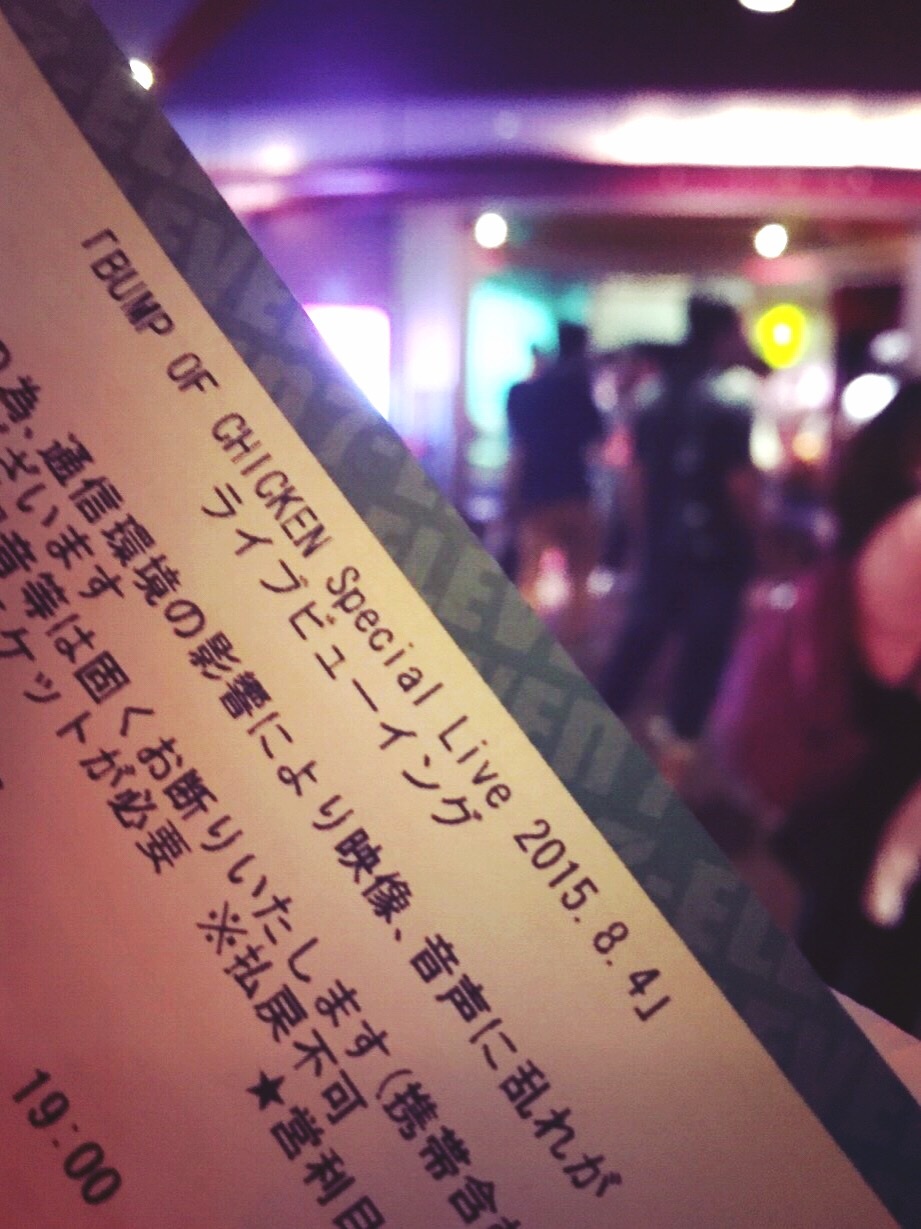 「BUMP OF CHICKEN Special Live 2015.8.4」
ライブビューイング
の為、通信環境の影響により映像、音声に乱れが
ざいます
音等は固くお断りいたします(携帯含
ケットが必要
※払戻不可
★営利目
19:00